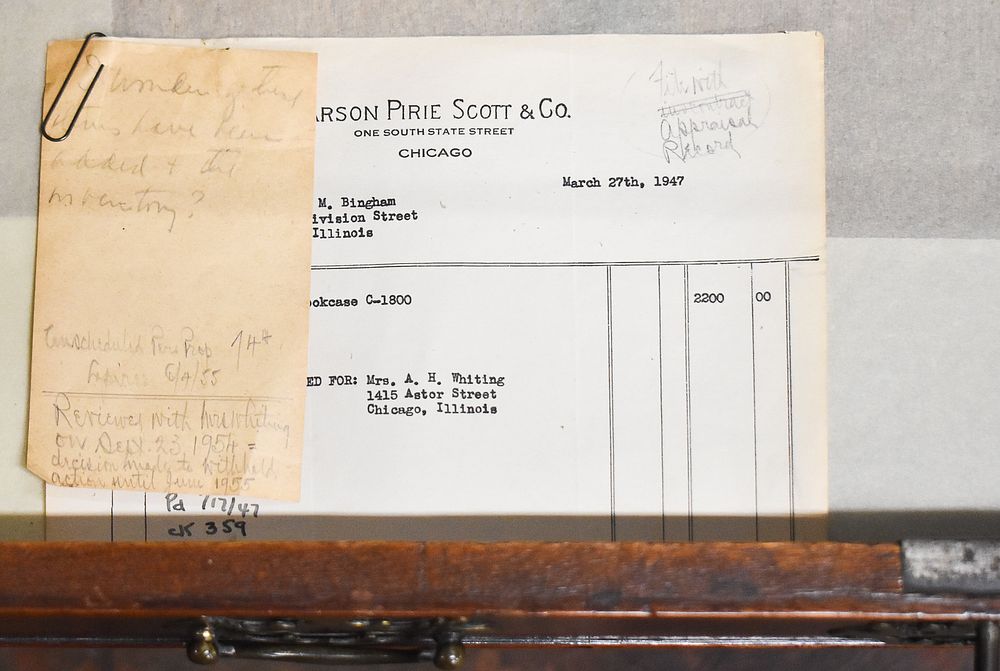 I wonder if these
items have been
added to the
inventory?
Unscheduled Pers Prop
Expires 6/4/55
Reviewed with Mrs Whiting
on Sept. 23, 1954 =
decision made to withhold
action until June 1955
ARSON PIRIE SCOTT & CO.
ONE SOUTH STATE STREET
CHICAGO
File with
Appraisal
Record
March 27th, 1947
M. Bingham
ivision Street
Illinois
ookcase C-1800 2200 00
ED FOR: Mrs. A. H. Whiting
1415 Astor Street
Chicago, Illinois
Pd 7/17/47
CK 359